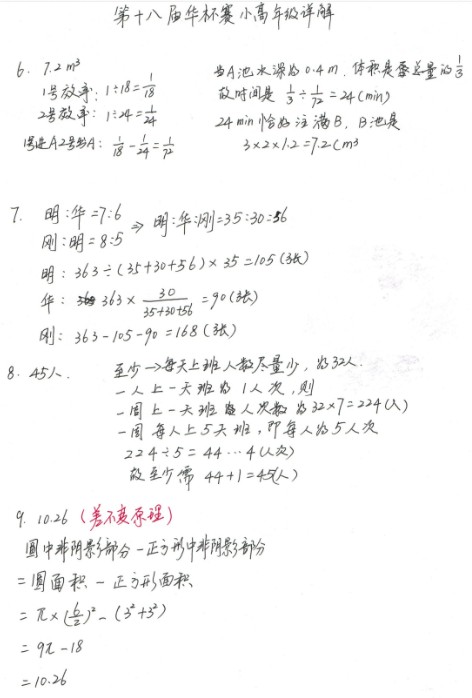 第十八届华杯赛小高年级详解
6. 7.2m³
1号效率：1÷18=1/18
2号效率：1÷24=1/24
1号进A2号出A：1/18-1/24=1/72
当A池水深为0.4m，体积是总量的1/3
故时间是 1/3÷1/72=24(min)
24min恰好注满B，B池是
3×2×1.2=7.2(m³
7. 明：华=7：6
刚：明=8：5
⇒ 明：华：刚=35：30：56
明：363÷(35+30+56)×35=105(张)
华：363×30/(35+30+56)=90(张)
刚：363-105-90=168(张)
8. 45人.
至少→每天上班人数尽量少，为32人.
一人上一天班为1人次，则
一周上一天班人次数为32×7=224(人)
一周每人上5天班，即每人为5人次
224÷5=44…4(人次)
故至少需 44+1=45(人)
9. 10.26（差不变原理）
圆中非阴影部分-正方形中非阴影部分
=圆面积-正方形面积
=π×(6/2)²-(3²+3²)
=9π-18
=10.26